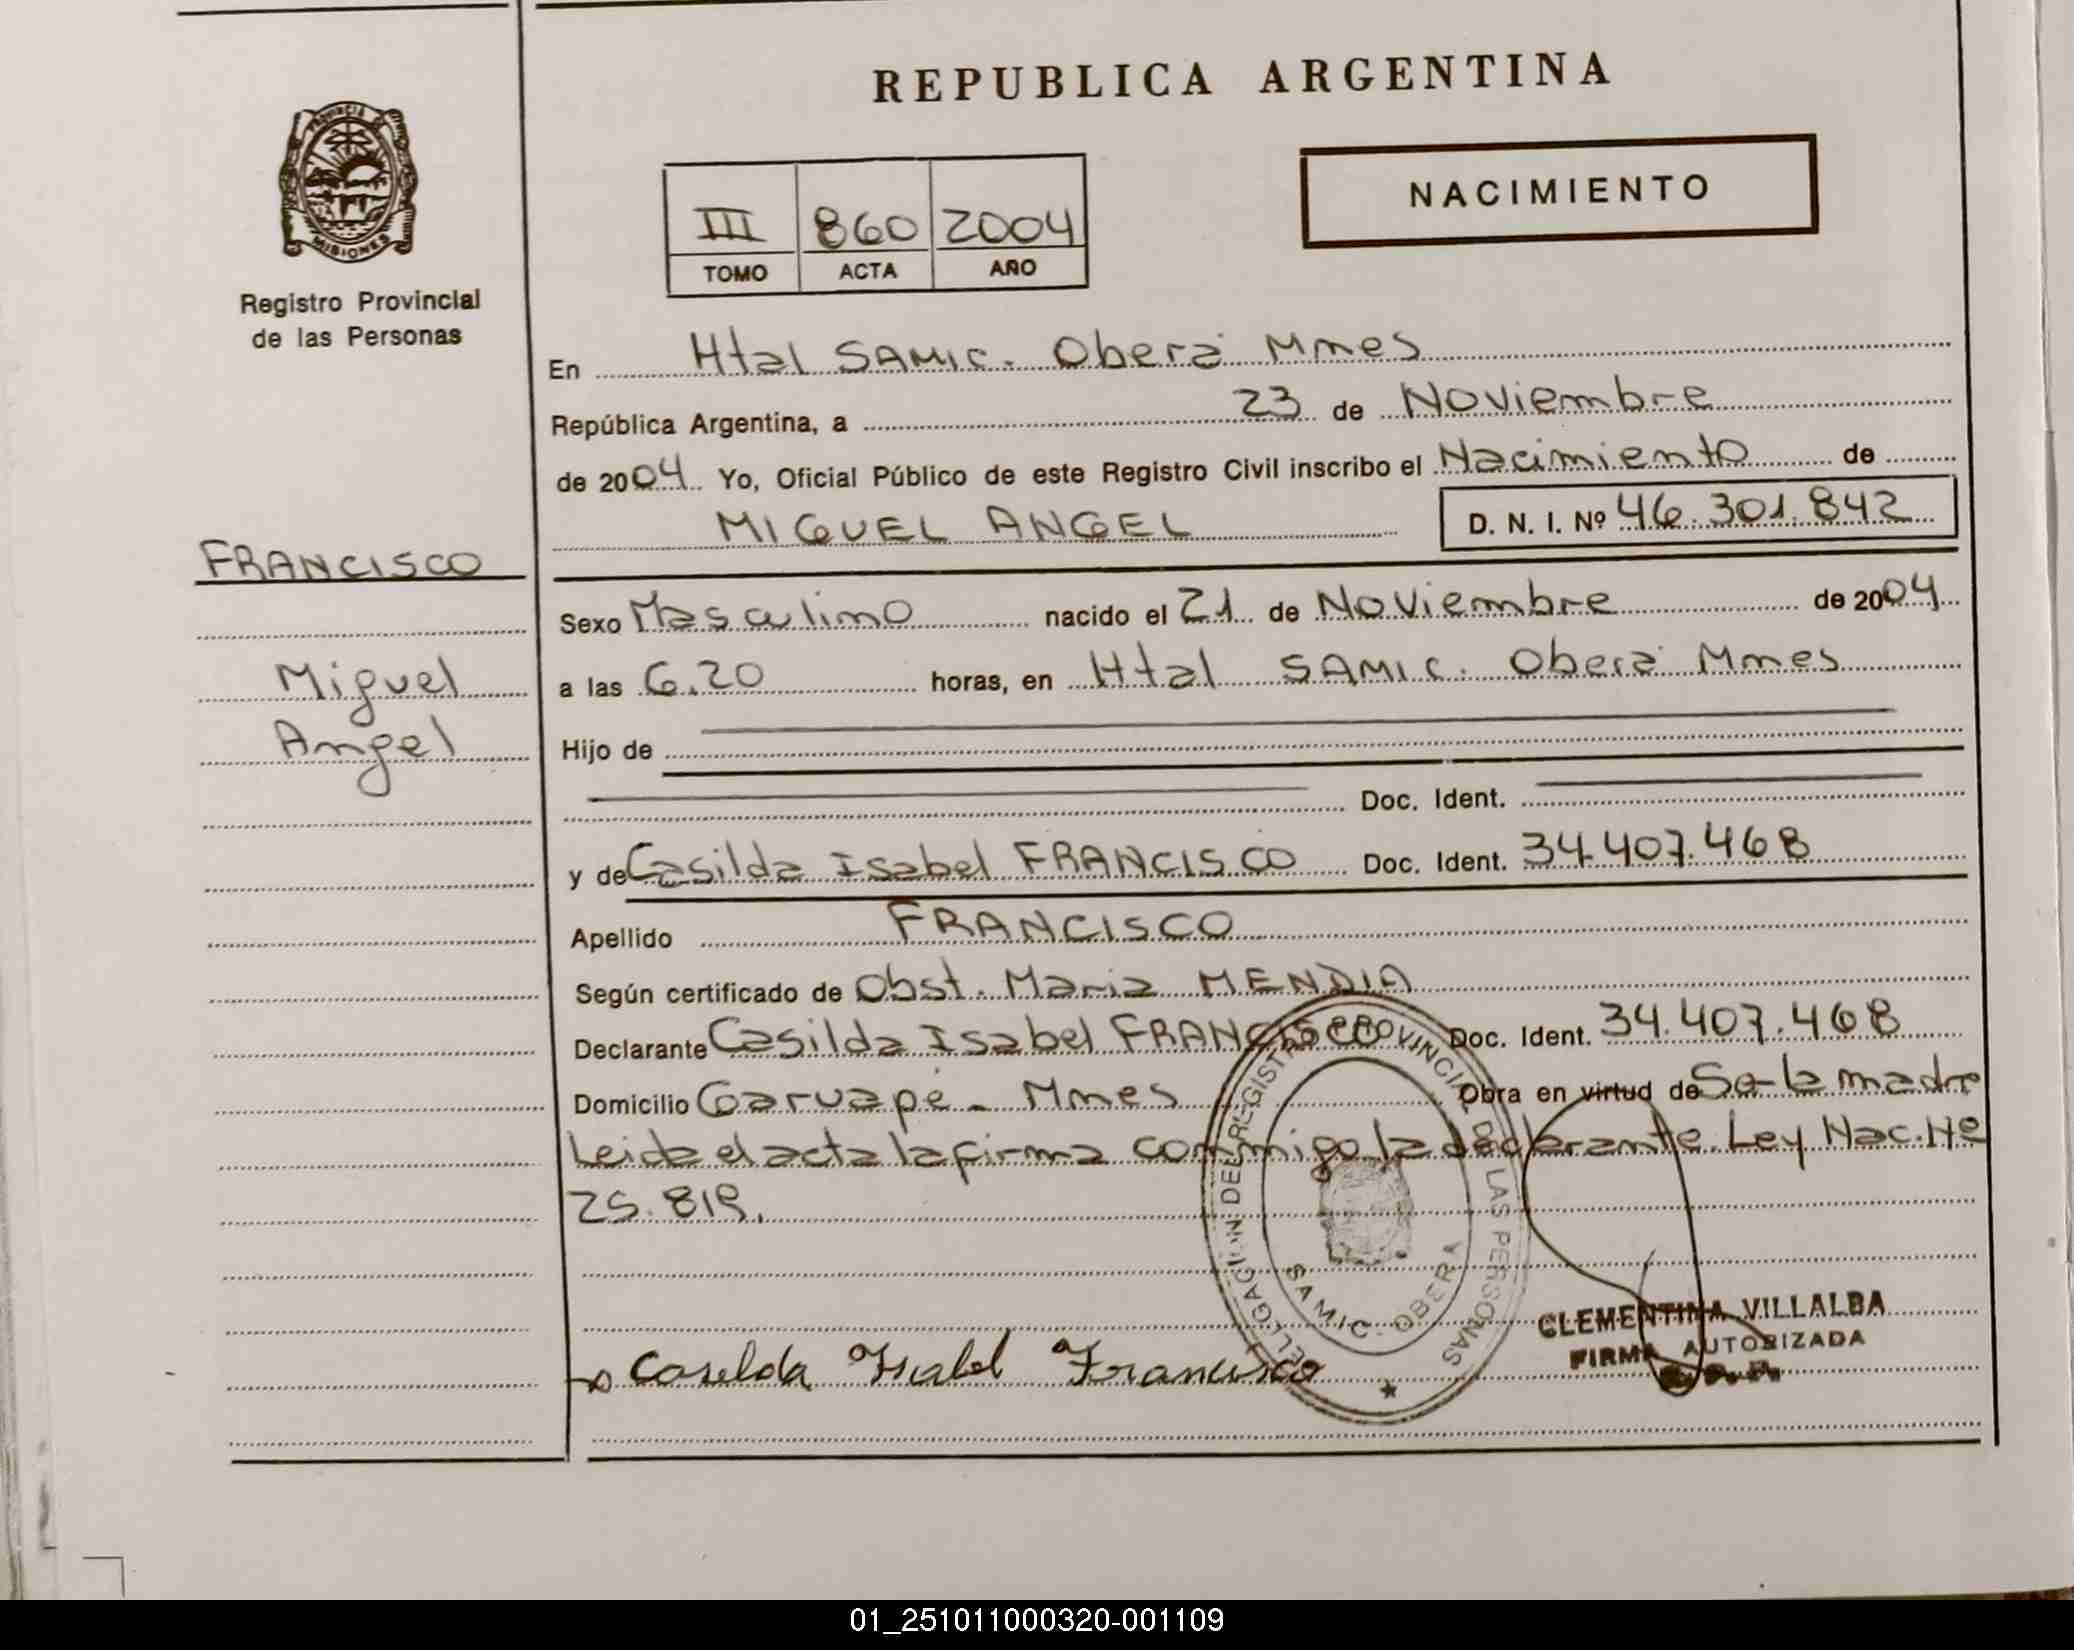 REPUBLICA ARGENTINA
PROVINCIA DE
MISIONES
Registro Provincial
de las Personas
NACIMIENTO
III 860 2004
TOMO ACTA AÑO
En Htal SAMIC. Oberá Mnes
República Argentina, a 23 de Noviembre
de 2004 Yo, Oficial Público de este Registro Civil inscribo el Nacimiento de
MIGUEL ANGEL D. N. I. Nº 46.301.842
FRANCISCO
Miguel
Angel
Sexo Masculino nacido el 21 de Noviembre de 2004
a las 6.20 horas, en Htal SAMIC. Oberá Mnes
Hijo de
Doc. Ident.
y de Casilda Isabel FRANCISCO Doc. Ident. 34.407.468
Apellido FRANCISCO
Según certificado de Obst. Maria MENDIA
Declarante Casilda Isabel FRANCISCO Doc. Ident. 34.407.468
Domicilio Garuapé - Mnes Obra en virtud de Se la madre
Leida el acta la firma conmigo la declarante. Ley Nac. Nº
25.819.
DELEGACION DEL REGISTRO PROVINCIAL DE LAS PERSONAS
SAMIC - OBERA
CLEMENTINA VILLALBA
FIRMA AUTORIZADA
Casilda Isabel Francisco
01_251011000320-001109